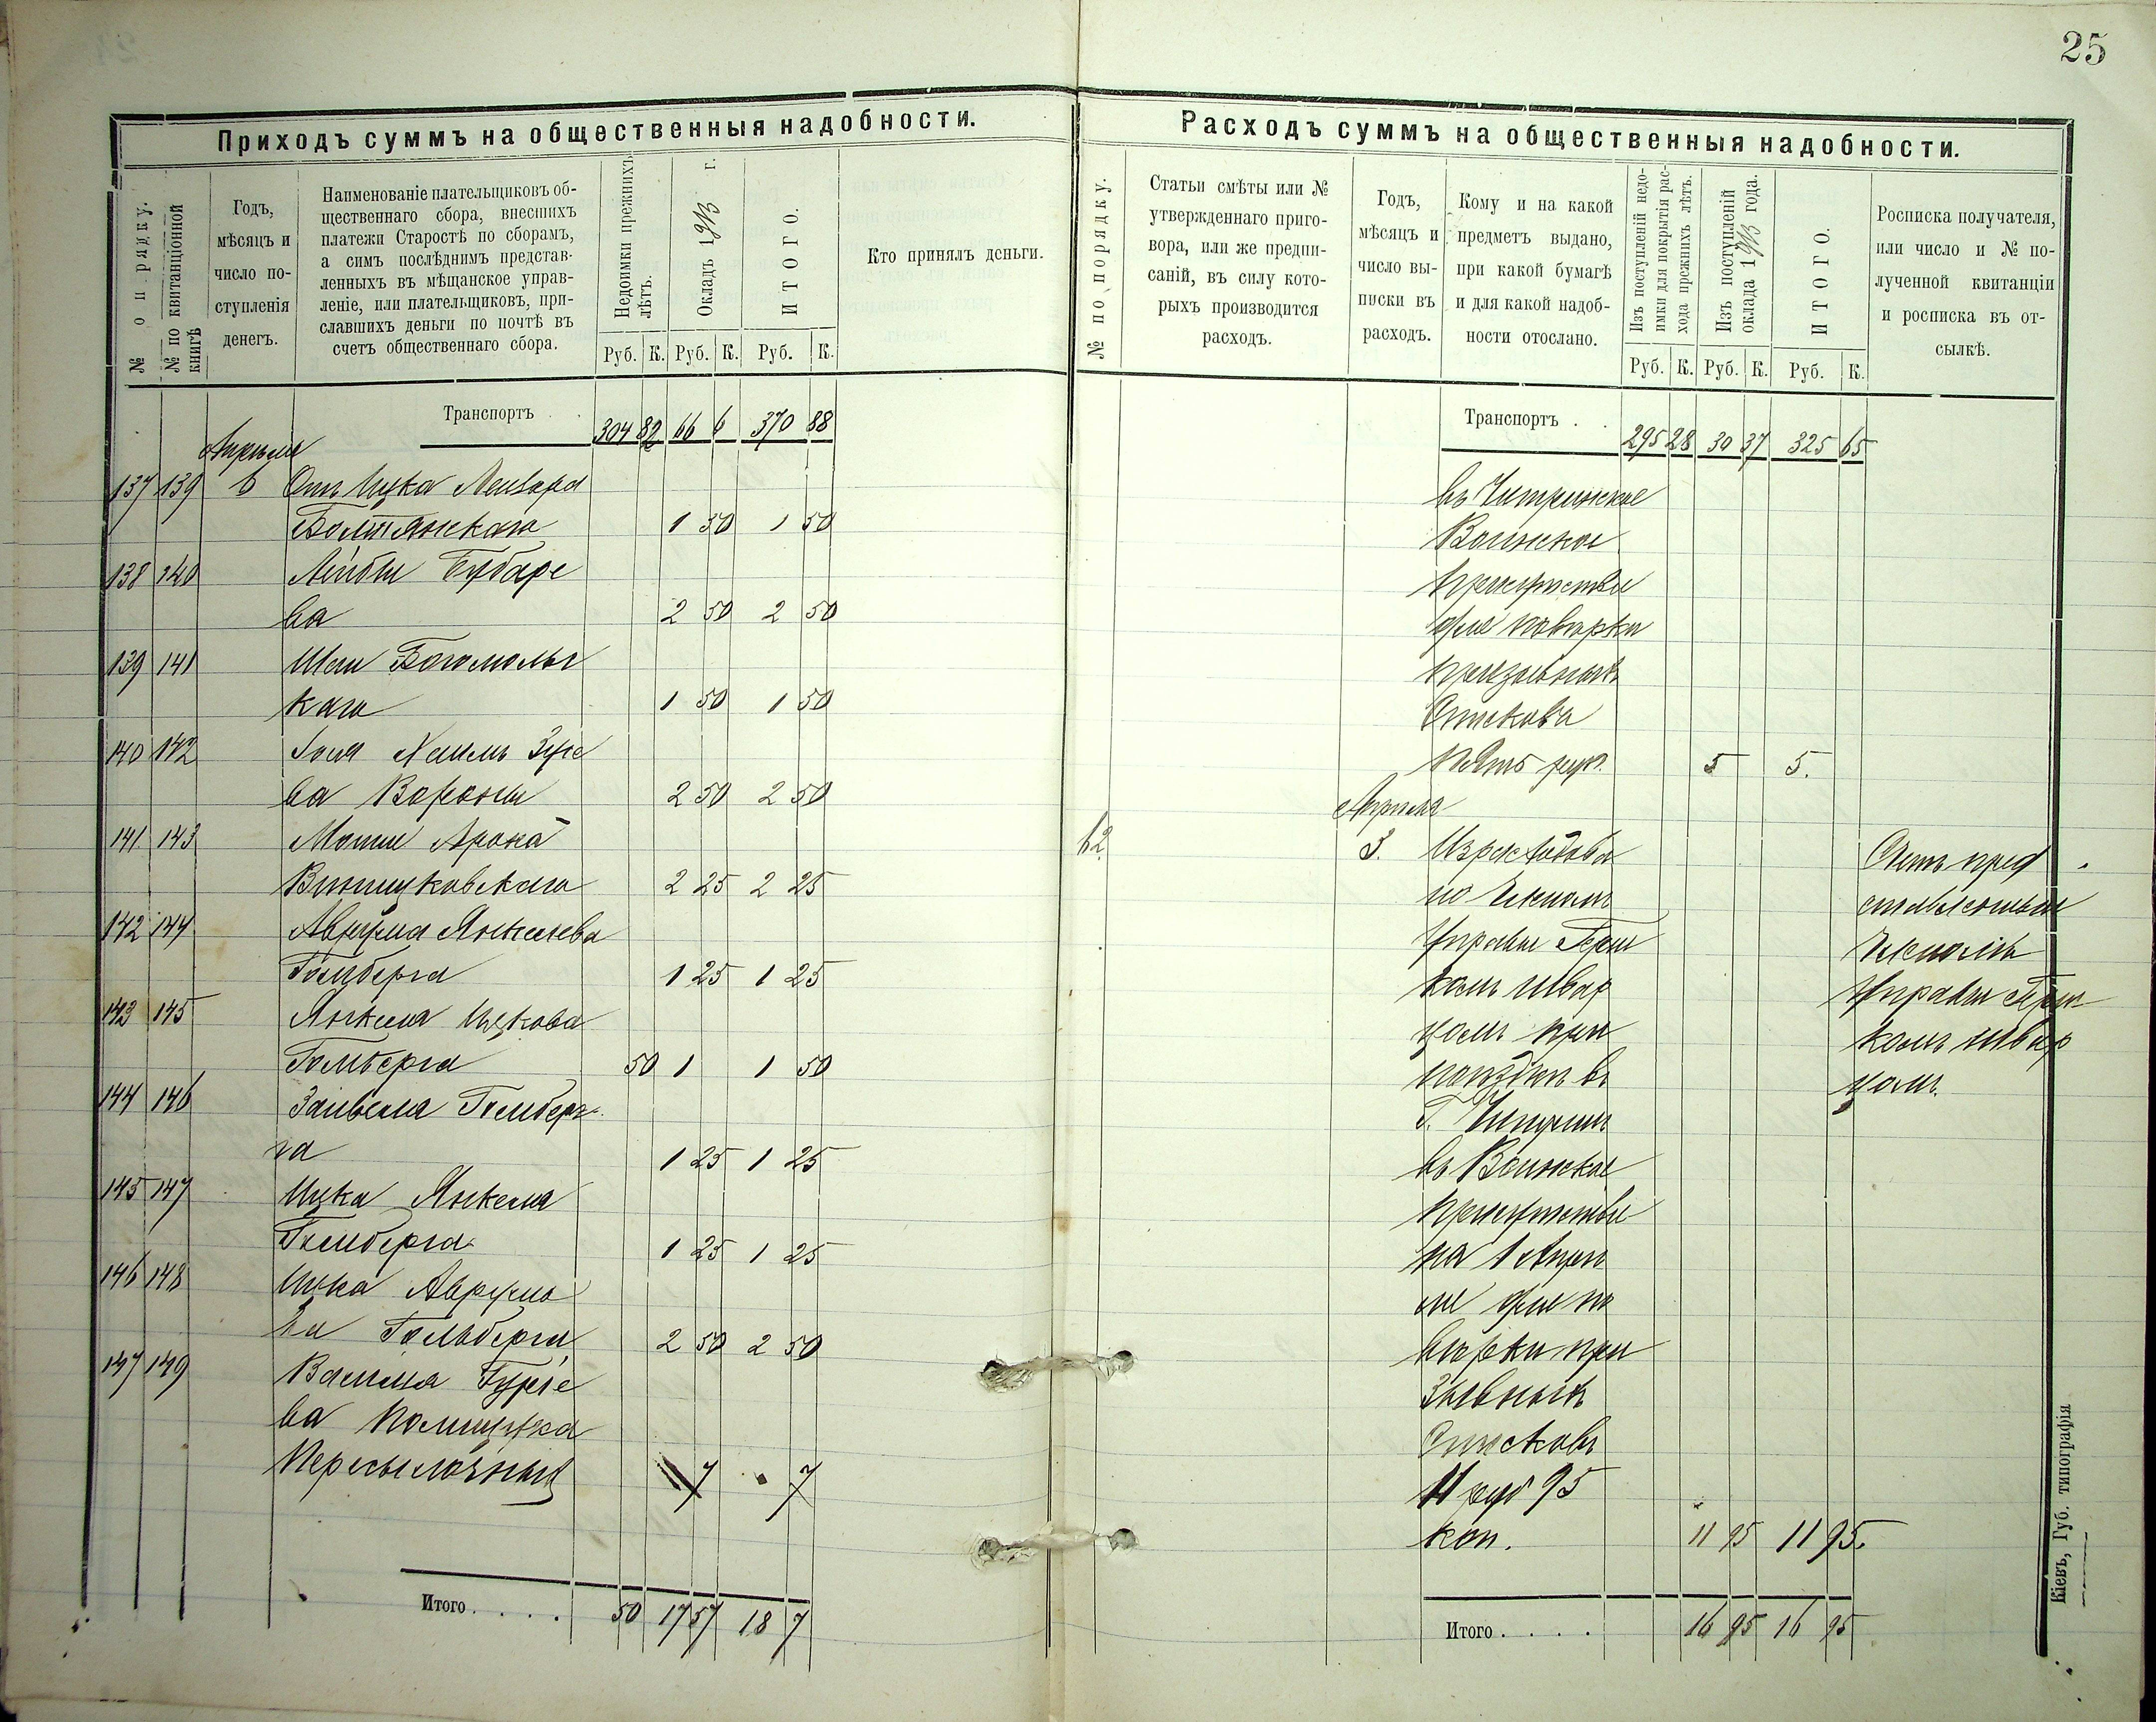 25
Приходъ суммъ на общественныя надобности.
№ по рядку.
№ по квитанціонной книгѣ
Годъ,
мѣсяцъ и
число по-
ступленія
денегъ.
Наименованіе плательщиковъ об-
щественнаго сбора, внесшихъ
платежи Старостѣ по сборамъ,
а симъ послѣднимъ представ-
ленныхъ въ мѣщанское управ-
леніе, или плательщиковъ, при-
славшихъ деньги по почтѣ въ
счетъ общественнаго сбора.
Недоимки прежнихъ
лѣтъ.
Окладъ 1913 г.
ИТОГО.
Кто принялъ деньги.
Руб. К. Руб. К. Руб. К.
Транспортъ . . 304 82 66 6 370 88
Апрѣля
137 139 6 Отъ Ицка Лейзора
Болтянскаго 1 50 1 50
138 140 Лейбы
ва 2 50 2 50
139 141 Богомольс
каго 1 50 1 50
140 142
ва Вороны 2 50 2 50
141 143 Арона
2 25 2 25
142 144 Аврума Янкелева
Гомберга 1 25 1 25
143 145 Янкеля Ицкова
Гомберга 50 1 1 50
144 146 Зайвеля Гомбер-
га 1 25 1 25
145 147 Ицка Янкеля
Гомберга 1 25 1 25
146 148 Ицка Аврумо
ва Гольберга 2 50 2 50
147 149
ва
Пересылочныя 7 7
Итого . . . . 50 17 57 18 7
Расходъ суммъ на общественныя надобности.
№ по порядку.
Статьи смѣты или №
утвержденнаго приго-
вора, или же предпи-
саній, въ силу кото-
рыхъ производится
расходъ.
Годъ,
мѣсяцъ и
число вы-
писки въ
расходъ.
Кому и на какой
предметъ выдано,
при какой бумагѣ
и для какой надоб-
ности отослано.
Изъ поступленій недо-
имки для покрытія рас-
хода прежнихъ лѣтъ.
Изъ поступленій
оклада 1913 года.
ИТОГО.
Росписка получателя,
или число и № по-
лученной квитанціи
и росписка въ от-
сылкѣ.
Руб. К. Руб. К. Руб. К.
Транспортъ . . 295 28 30 37 325 65
въ Чигринское
Воинское
присутствіе
для повѣрки
призывныхъ
списковъ
пять руб. 5 5.
Апрѣля
62 3. Израсходова
но членомъ
Управы Герш
комъ Швар
цомъ при
поѣздкѣ въ
г. Чигринъ
въ Воинское
присутствіе
на 1 Апрѣ
ля для по
вѣрки при
зывныхъ
списковъ
11 руб 95
коп. 11 95 11 95.
Счетъ пред
ставленный
членомъ
Управы Герш
комъ Швар
цомъ.
Итого . . . . 16 95 16 95
Кіевъ, Губ. типографія